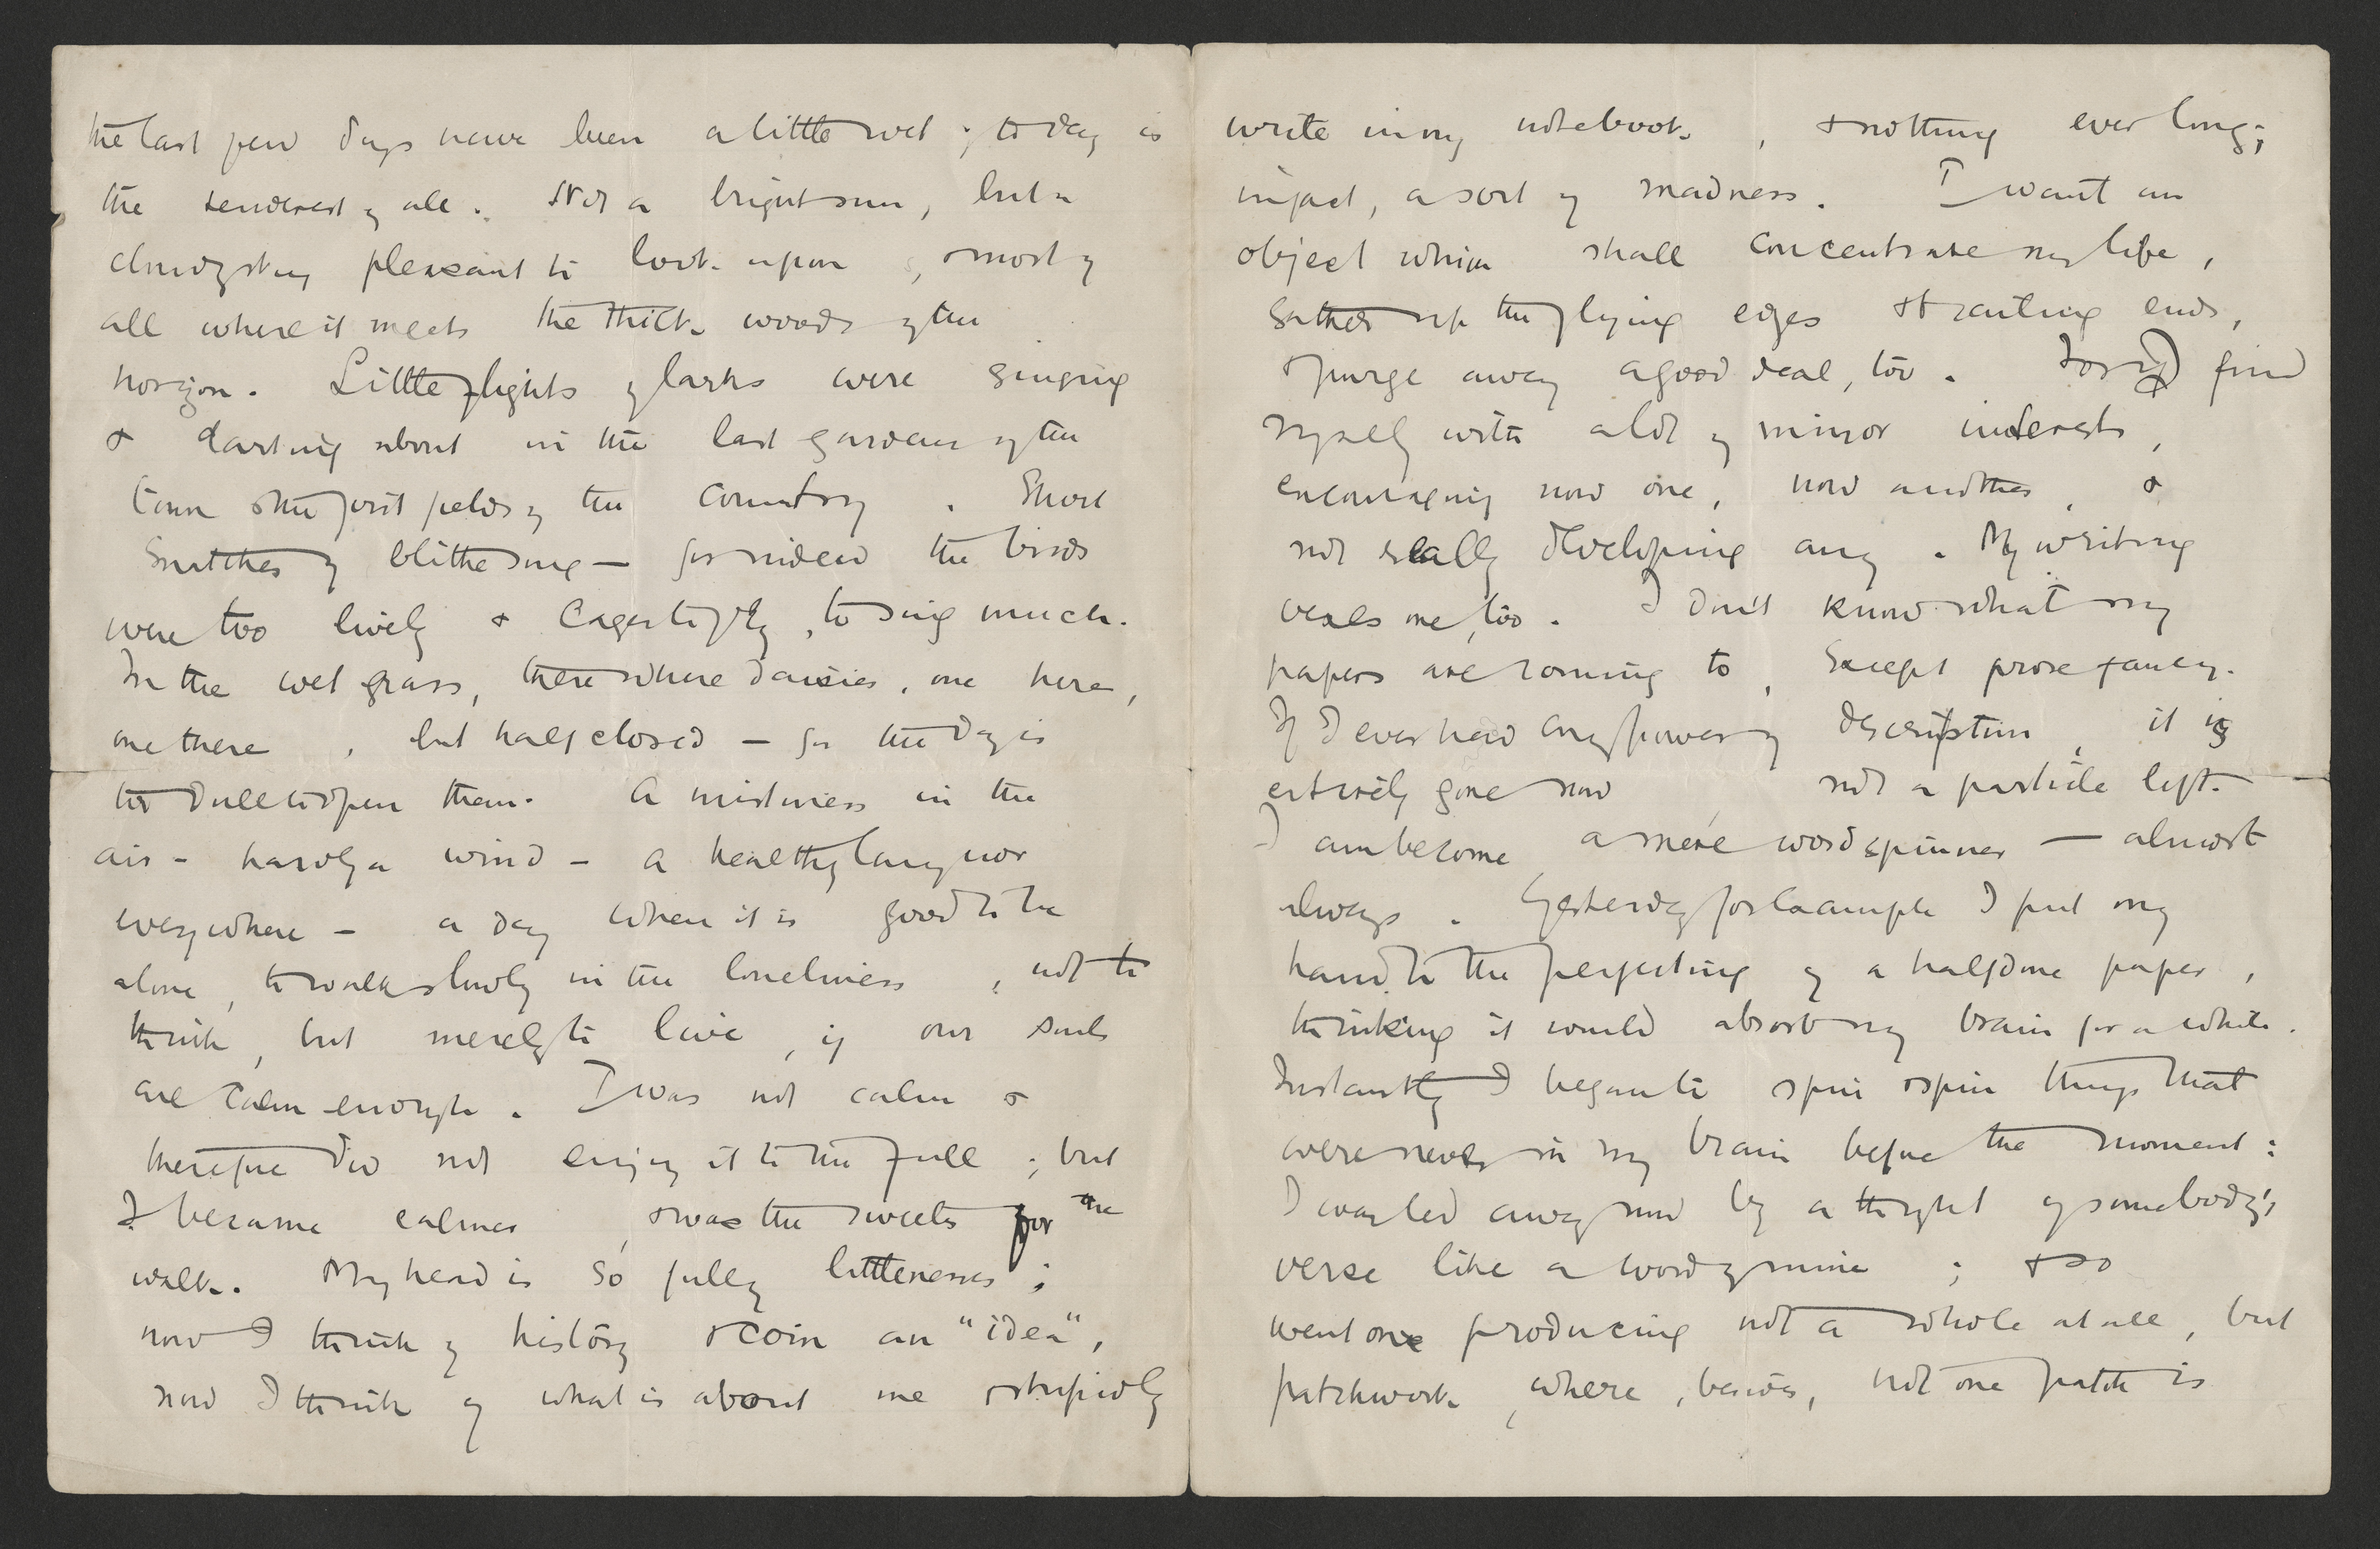 the last few days have been a little wet; to day is
the tenderest of all. Not a bright sun, but a
cloudy sky pleasant to look upon, & most of
all where it meets the thick woods of the
horizon. Little flights of larks were singing
& darting about in the last gardens of the
town & the first fields of the country. Short
snatches of blithe song — for indeed the birds
were too lively & eager to fly, to sing much.
In the wet grass, there where daisies, one here,
one there, but half closed — for the day is
too dull to open them. A mistiness in the
air - hardly a wind - a healthy languor
everywhere - a day when it is good to be
alone, to walk slowly in the loneliness, not to
think, but merely to live, if our souls
are calm enough. I was not calm &
therefore did not enjoy it to the full; but
I became calmer, & was the sweeter for the
walk. My head is so full of littlenesses;
now I think of history & coin an "idea",
now I think of what is about me & stupidly
write in my notebook, & nothing ever long;
in fact, a sort of madness. I want an
object which shall concentrate my life,
gather up the flying edges & trailing ends,
& purge away a good deal, too. For I find
myself with a lot of minor interests,
encouraging now one, now another, &
not really developing any. My writing
vexes me, too. I don't know what my
papers are coming to, except prose fancy.
If I ever had any power of description, it is
entirely gone now not a particle left.
I am become a mere wordspinner — almost
always. Yesterday for example I put my
hand to the perfecting of a halfdone paper,
thinking it would absorb my brain for a while.
Instantly I began to spin & spin things that
were never in my brain before the moment:
I was led away now by a thought of somebody's
verse like a word of mine; & so
went on producing not a whole at all, but
patchwork, where, besides, not one patch is